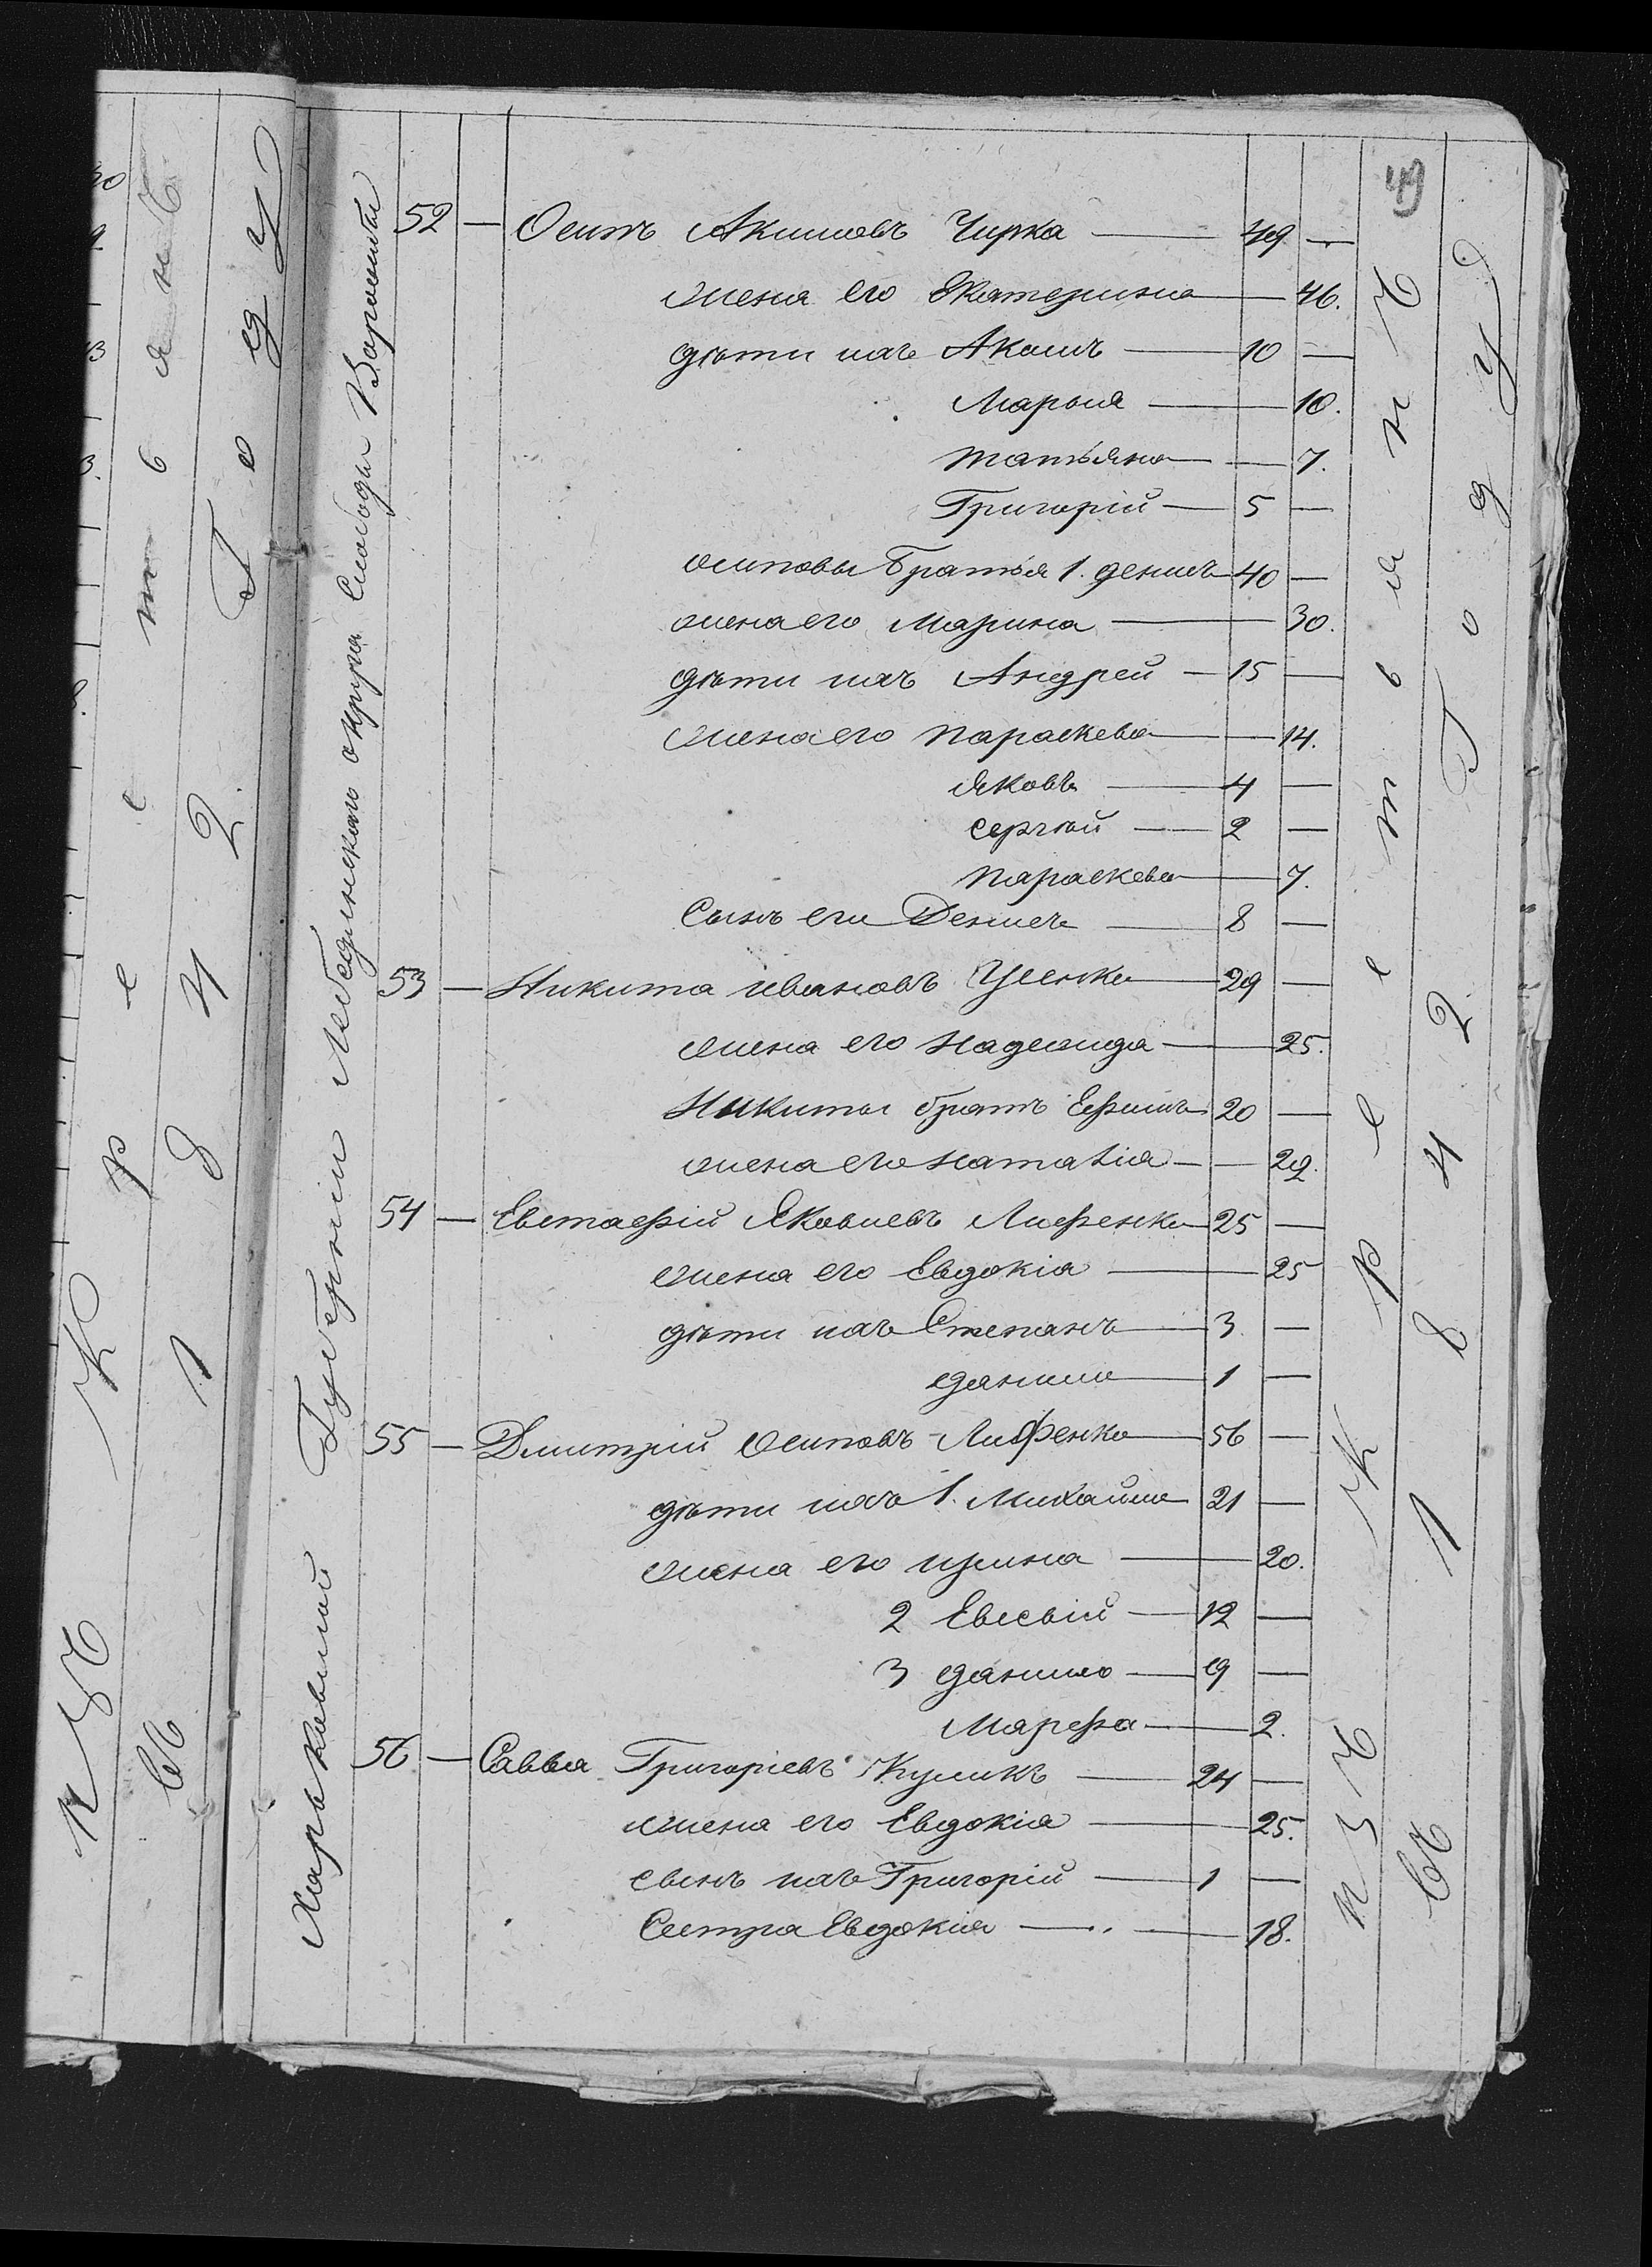 49
52 — Осипъ Акимовъ Чирка — 49 —
жена его Екатерина — 46.
дѣти ихъ Акимъ — 10 —
Марья — 10.
татьяна — 7.
Григорій — 5 —
осиповы братья 1. денисъ 40 —
жена его марина — 30.
дѣти ихъ Андрей — 15 —
жена его параскева — 14.
яковъ — 4 —
сергѣй — 2 —
параскева — 7.
Сынъ его Денисъ — 8 —
53 — Никита ивановъ — 29 —
жена его надежда — 25.
Никиты братъ Ефимъ 20 —
жена его наталія — 29.
54 — Евстафій Яковлевъ Лифенко 25 —
жена его Евдокія — 25
дѣти ихъ Степанъ — 3. —
данило — 1 —
55 — Дмитрій осиповъ Лифенко — 56 —
дѣти ихъ 1. Михайло 21 —
жена его ирина — 20.
2 Евсѣвій — 12 —
3 данило — 9 —
Марфа — 2.
56 — Савва Григоріевъ Куликъ — 24 —
жена его Евдокія — 25.
сынъ ихъ Григорій — 1 —
Сестра Евдокія — 18.
Харьковской Губерніи Лебединскаго округа Слободы Ворожбы
изъ крестьянъ
въ 1842 Году
изъ крестьянъ
въ 1842 Году